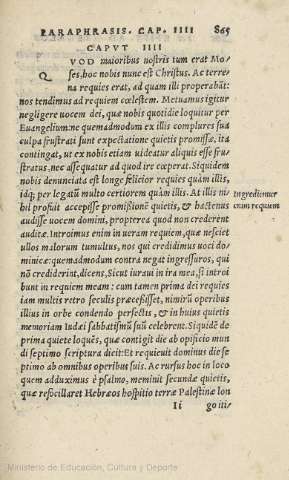 PARAPHRASIS. CAP. IIII 865
CAPVT IIII
QVOD maioribus nostris tum erat Mo/
ses, hoc nobis nunc est Christus. Ac terre
na requies erat, ad quam illi properabāt:
nos tendimus ad requiem cœlestem. Metuamus igitur
negligere vocem dei, quæ nobis quotidie loquitur per
Euangelium: ne quemadmodum ex illis complures sua
culpa frustrati sunt expectatione quietis promissæ, ita
contingat, ut ex nobis etiam uideatur aliquis esse fru
stratus, nec assequatur ad quod ire cœperat. Siquidem
nobis denunciata est longe felicior requies quàm illis,
idq; per legatū multo certiorem quàm illis. At illis ni
hil profuit accepisse promissionē quietis, & hactenus
audisse uocem domini, propterea quod non crederent
auditæ. Introimus enim in ueram requiem, quæ nesciet
ullos malorum tumultus, nos qui credidimus uoci do
minicæ: quemadmodum contra negat ingressuros, qui
nō crediderint, dicens, Sicut iuraui in ira mea, si introi
bunt in requiem meam: cum tamen prima dei requies
iam multis retro seculis præcesißet, nimirū operibus
illius in orbe condendo perfectis, & in huius quietis
memoriam Iudæi sabbatismū suū celebrent. Siquidē de
prima quiete loquēs, quæ contigit die ab opificio mun
di septimo scriptura dicit: Et requieuit dominus die se
ptimo ab omnibus operibus suis. Ac rursus hoc in loco
quem adduximus è psalmo, meminit secundæ quietis,
quæ refocillaret Hebræos hospitio terræ Palestinæ lon
Ii go iti/
Ingredimur
enim requiem
Ministerio de Educación, Cultura y Deporte